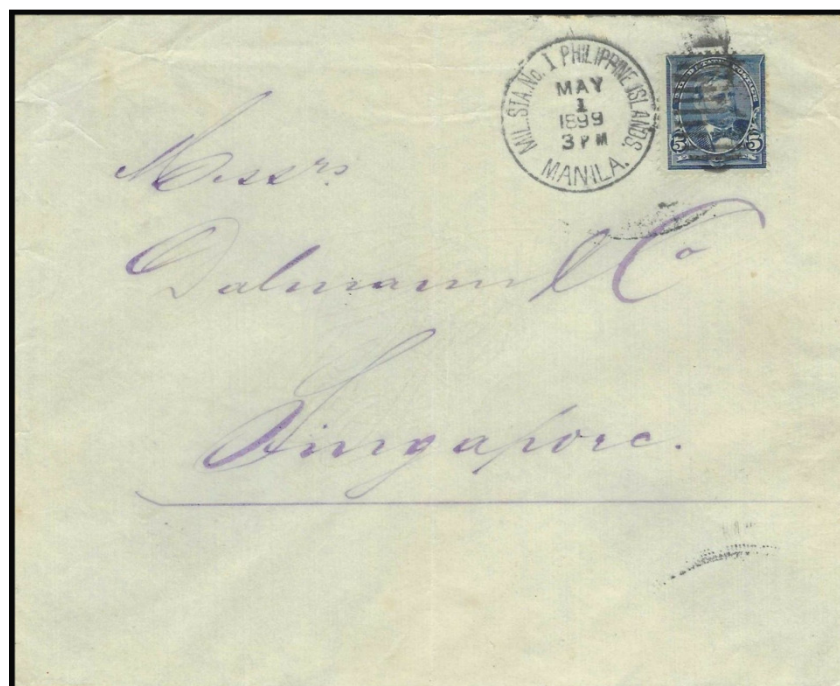 MIL. STA. No. 1 PHILIPPINE ISLANDS.
MAY
1
1899
3 PM
MANILA.
5 5
Messrs
Dalmann & Co
Singapore.